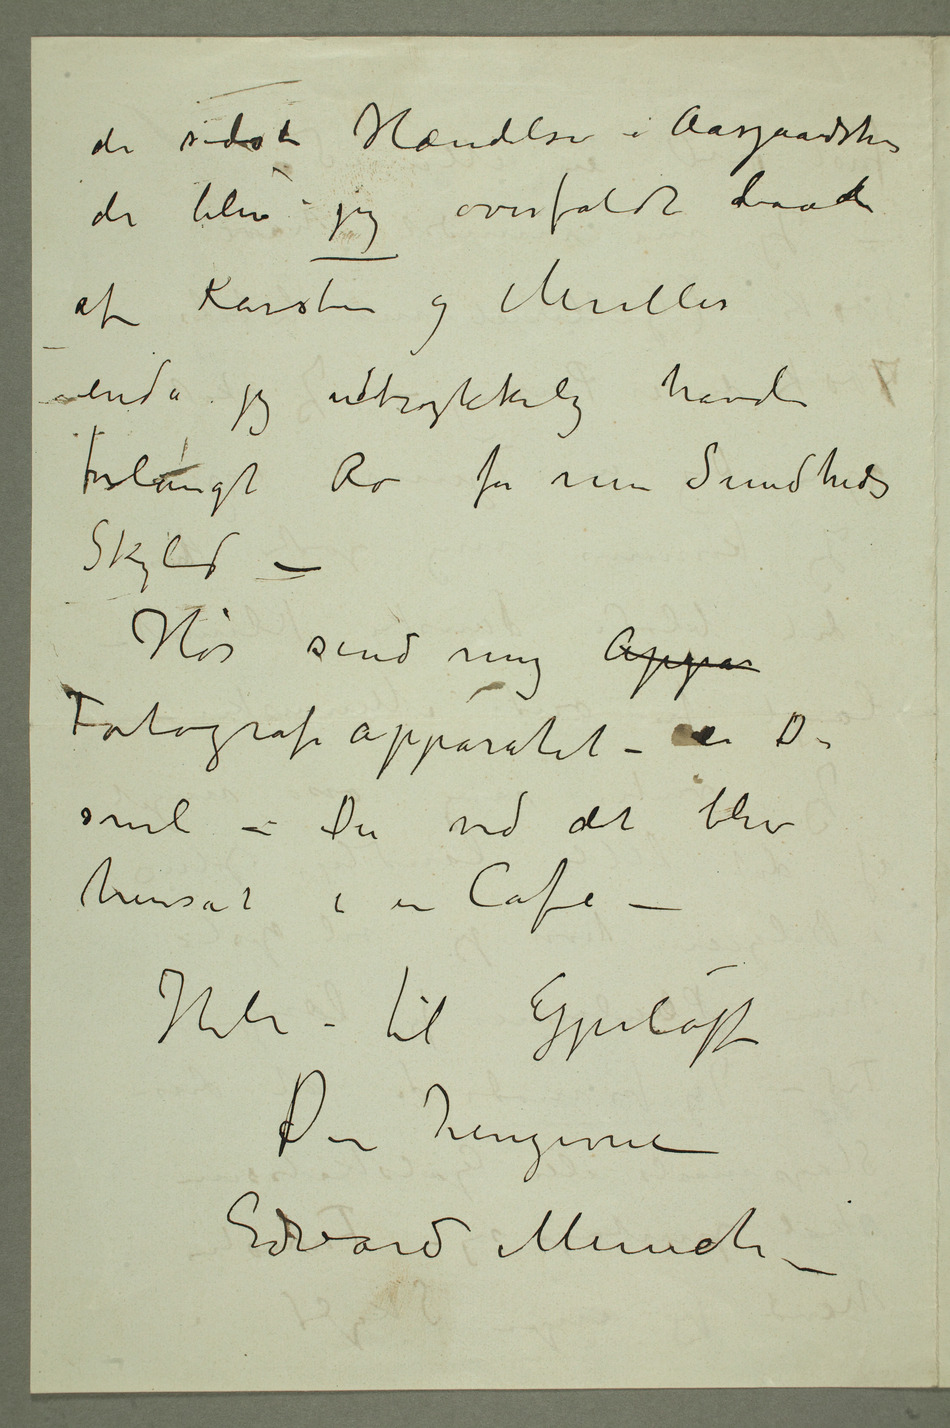 de sidste Hændelse i Aasgaardstr
der blev jeg overfaldt baade
af Karsten og Müller
– enda jeg udtrykkelig havde
forlangt Ro for min Sundheds
Skyld –
Hør send mig Appar
Fotografiapparatet – er D
snil – Du ved det blev
hensat i en Cafe –
Hils – til Gjerløff
Din hengivne
Edvard Munch –